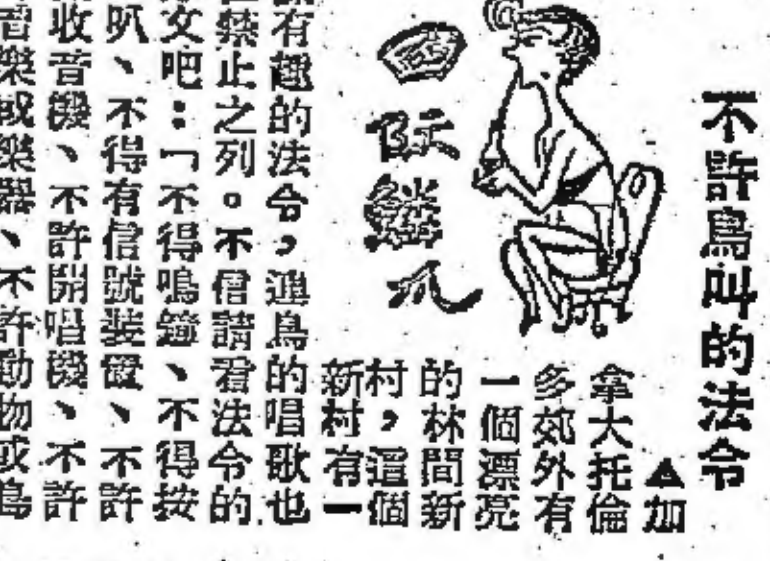 不許鳥叫的法令
▲加
拿大托倫
多郊外有
一個漂亮
的林間新
村，這個
新村有一
有趣的法令，連鳥的唱歌也
禁止之列。不信請看法令的
文吧：「不得鳴鐘、不得按
叭、不得有信號裝置、不許
收音機、不許開唱機、不許
音樂或樂器、不許動物或鳥